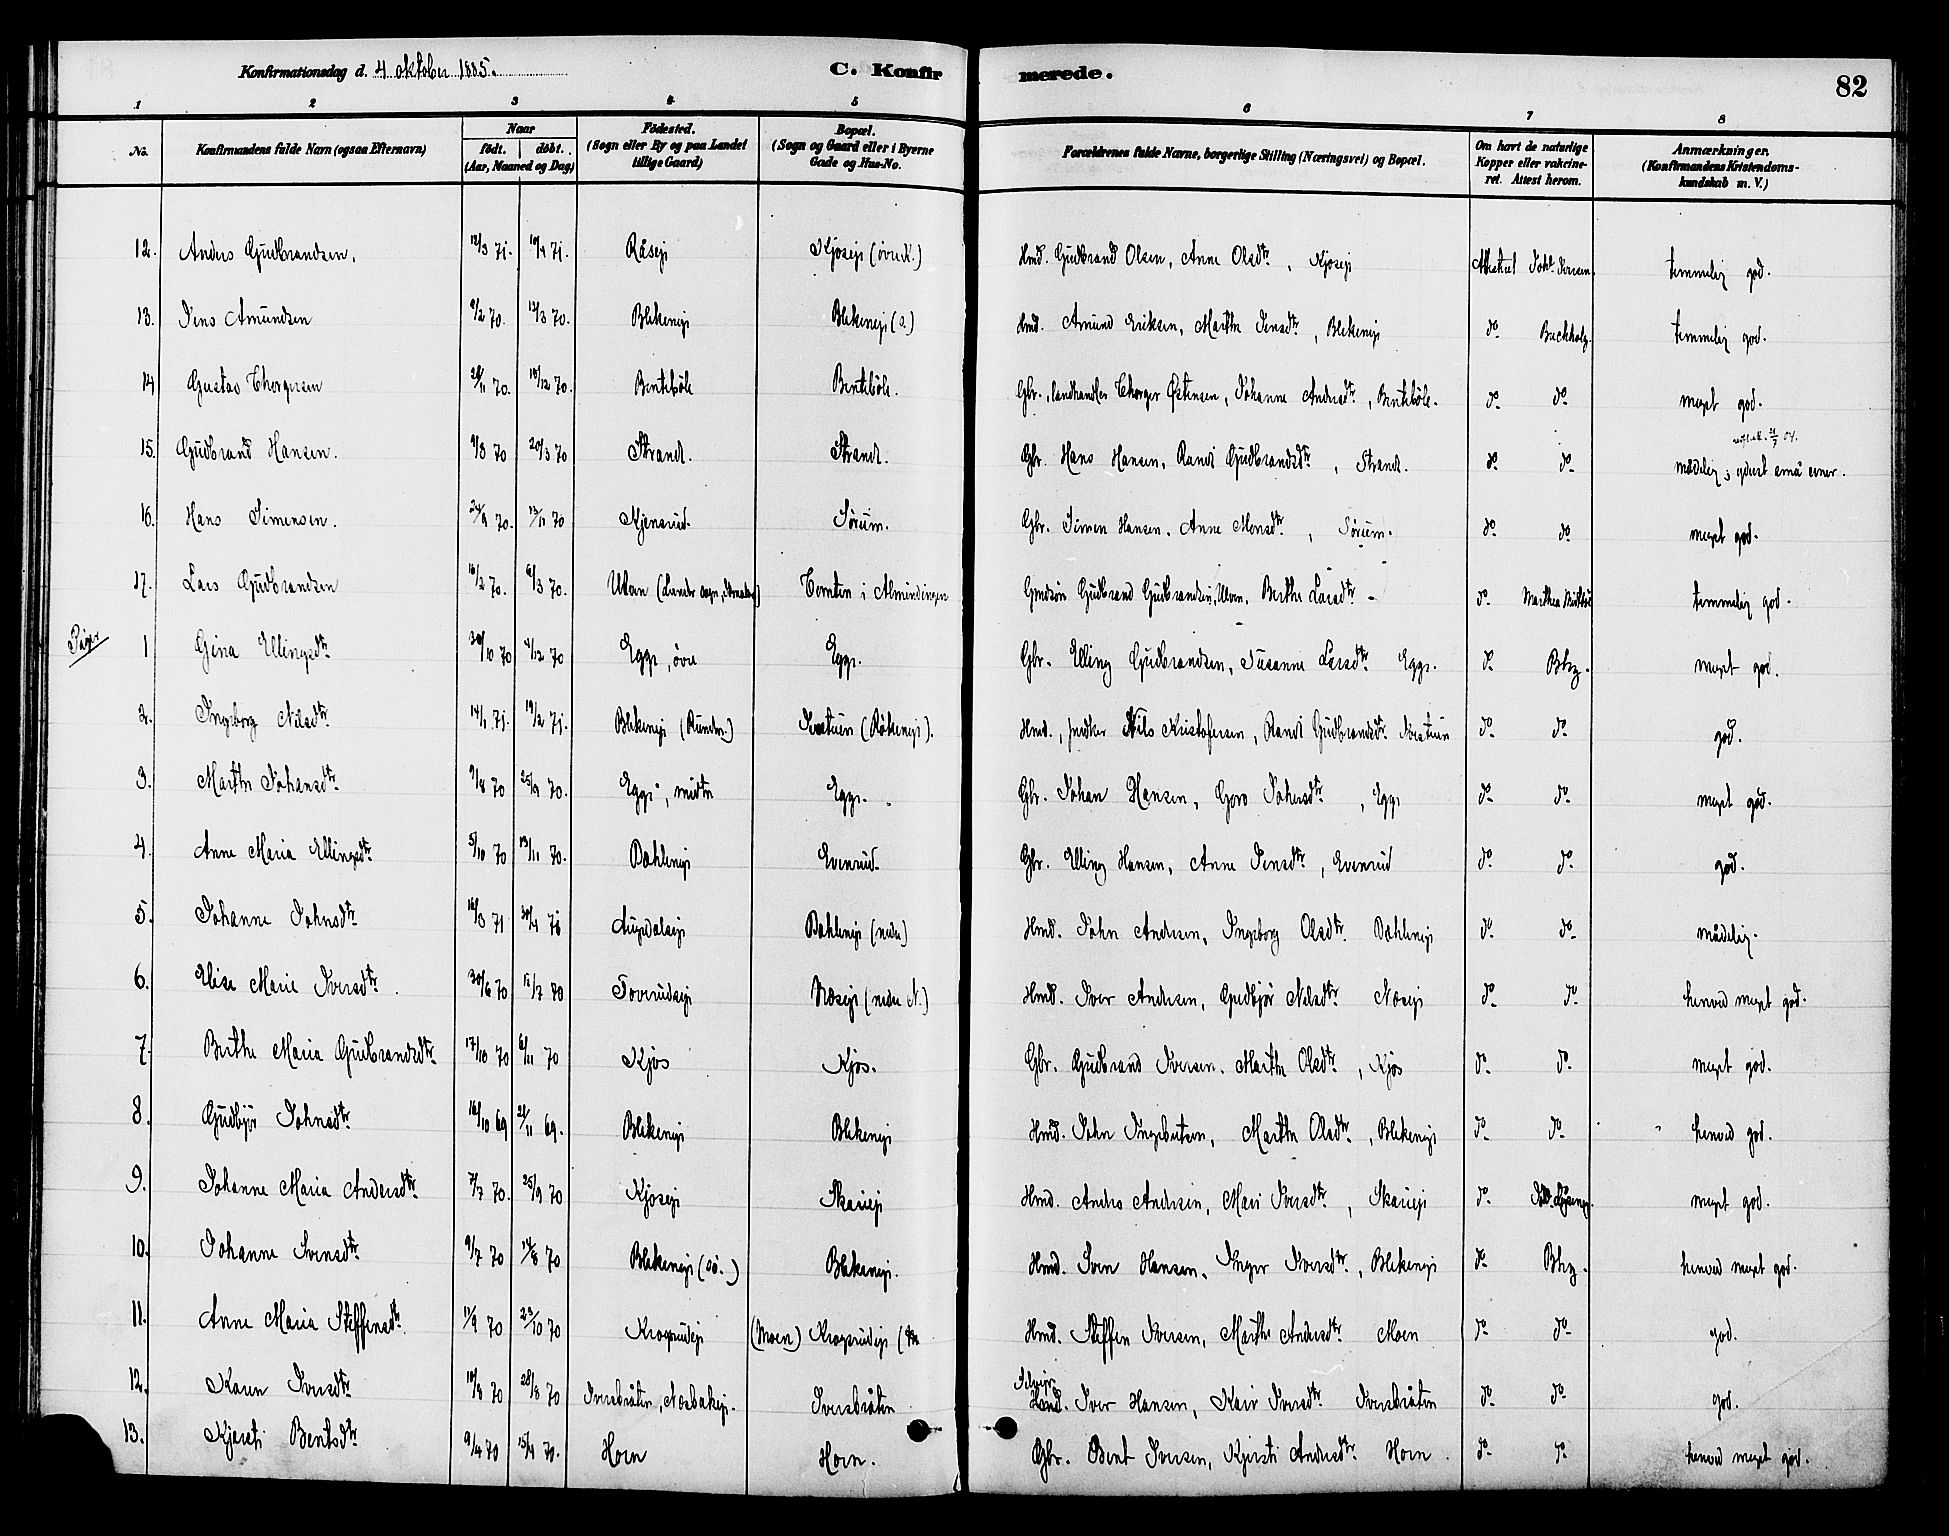 Konfirmationsdag d. 4 oktober 1885.
C. Konfirmerede.
82
1 2 3 4 5 6 7 8
No. Konfirmandens fulde Navn (ogsaa Efternavn) Naar födt. döbt. (Aar, Maaned og Dag) Födested. (Sogn eller By og paa Landet tillige Gaard) Bopæl. (Sogn og Gaard eller i Byerne Gade og Hus-No. Forældrenes fulde Navne, borgerlige Stilling (Næringsvei) og Bopæl. Om havt de naturlige Kopper eller vakcineret. Attest herom. Anmærkninger. (Konfirmandens Kristendomskundskab m. V.)
12. Anders Gudbrandsen. 12/3 71. 10/4 71. Råseji Kjöseji (övre K.) Hmd. Gudbrand Olsen, Anne Olsdtr, Kjoseji Attestret Joh. Iversen. temmelig god.
13. Jens Amundsen 9/2 70. 13/3 70. Blekeneji Blekeneji (s.) Hmd. Amund Eriksen, Marthe Jensdtr, Blekeneji do Buchholz. temmelig god.
14 Gustav Thorgersen 28/11 70. 18/12 70. Benteböle Benteböle. Gbr., landhandler Thorger Østensen, Johanne Andersdtr, Benteböle. do do meget god.
15. Gudbrand Hansen. 9/3 70 20/3 70 Strand. Strand. Gbr. Hans Hansen, Randi Gudbrandsdtr, Strand. do do mådelig; yderst små evner.
16. Hans Simensen. 24/9 70. 13/11 70 Kjensrud. Sörum. Gbr. Simen Hansen, Anne Monsdtr, Sörum. do do meget god.
17. Lars Gudbrandsen 16/2 70. 6/3 70. Ulven (Lunder sogn, Tomten i Almindingen Gmdsön Gudbrand Gudbrandsen, Ulven, Berthe Larsdtr - do Marthea temmelig god.
Piger
1 Gina Ellingsdtr 30/10 70 4/12 70 Egge, övre Egge. Gbr. Elling Gudbrandsen, Susanne Larsdtr Egge. do Bhz. meget god.
2. Ingeborg Nilsdtr. 14/1 71. 19/2 71. Blekeneji Ivertuen (Rökeneji). Hmd., Nils Kristofersen, Randi Gudbrandsdtr Ivertuen do do god.
3. Marthe Johansdtr. 9/8 70 25/9 70. Egge, midtre Egge. Gbr. Johan Hansen, Goro Johnsdtr, Egge do do meget god.
4. Anne Maria Ellingsdtr. 5/10 70 13/11 70. Dæhleneji Evenrud. Gbr. Elling Hansen, Anne Jensdtr, Evenrud do do god.
5. Johanne Johnsdtr 16/3 71 30/4 71 Augedalseji Dæhleneji (nedre) Hmd. John Andersen, Ingeborg Olsdtr. Dæhleneji do do mådelig.
6. Elise Marie Iversdtr. 30/6 70 15/7 70 Toverudseji Næseji (nedre N.) Hmd. Iver Andersen, Gudbjör Nilsdtr Næseji do do henved meget god.
7. Berthe Maria Gudbrandsdtr. 17/10 70 6/11 70 Kjös Kjös. Gbr. Gudbrand Iversen, Marthe Olsdtr, Kjös do do meget god.
8. Gudbjör Johnsdtr. 16/10 69 21/11 69. Blekeneji Blekeneji Hmd. John Ingebretsen, Marthe Olsdtr, Blekeneji do do henved god.
9. Johanne Maria Andersdtr. 7/7 70. 25/9 70 Kjoseji Skarieji Hmd. Anders Andersen, Mari Iversdtr, Skarieji do meget god.
10. Johanne Svensdtr. 9/7 70 14/8 70 Blekeneji (sö.) Blekeneji. Hmd. Sven Hansen, Inger Iversdtr, Blekeneji do Bhz. henved meget god.
11. Anne Maria Steffensdtr. 11/9 70 23/10 70 Krogsrudeji (Moen) Krogsrudeji Hmd. Steffen Iversen, Marthe Andersdtr. Moen do do god.
12. Karen Iversdtr. 10/8 70 28/8 70 Iversbråten, Næsbakeji. Iversbråten Selvejer Iver Hansen, Kari Iversdtr Iversbråten do do god.
13. Kjersti Bentsdtr 9/4 70 15/4 70. Horn Horn. Gbr. Bent Iversen, Kjersti Andersdtr Horn. do do henved meget god.